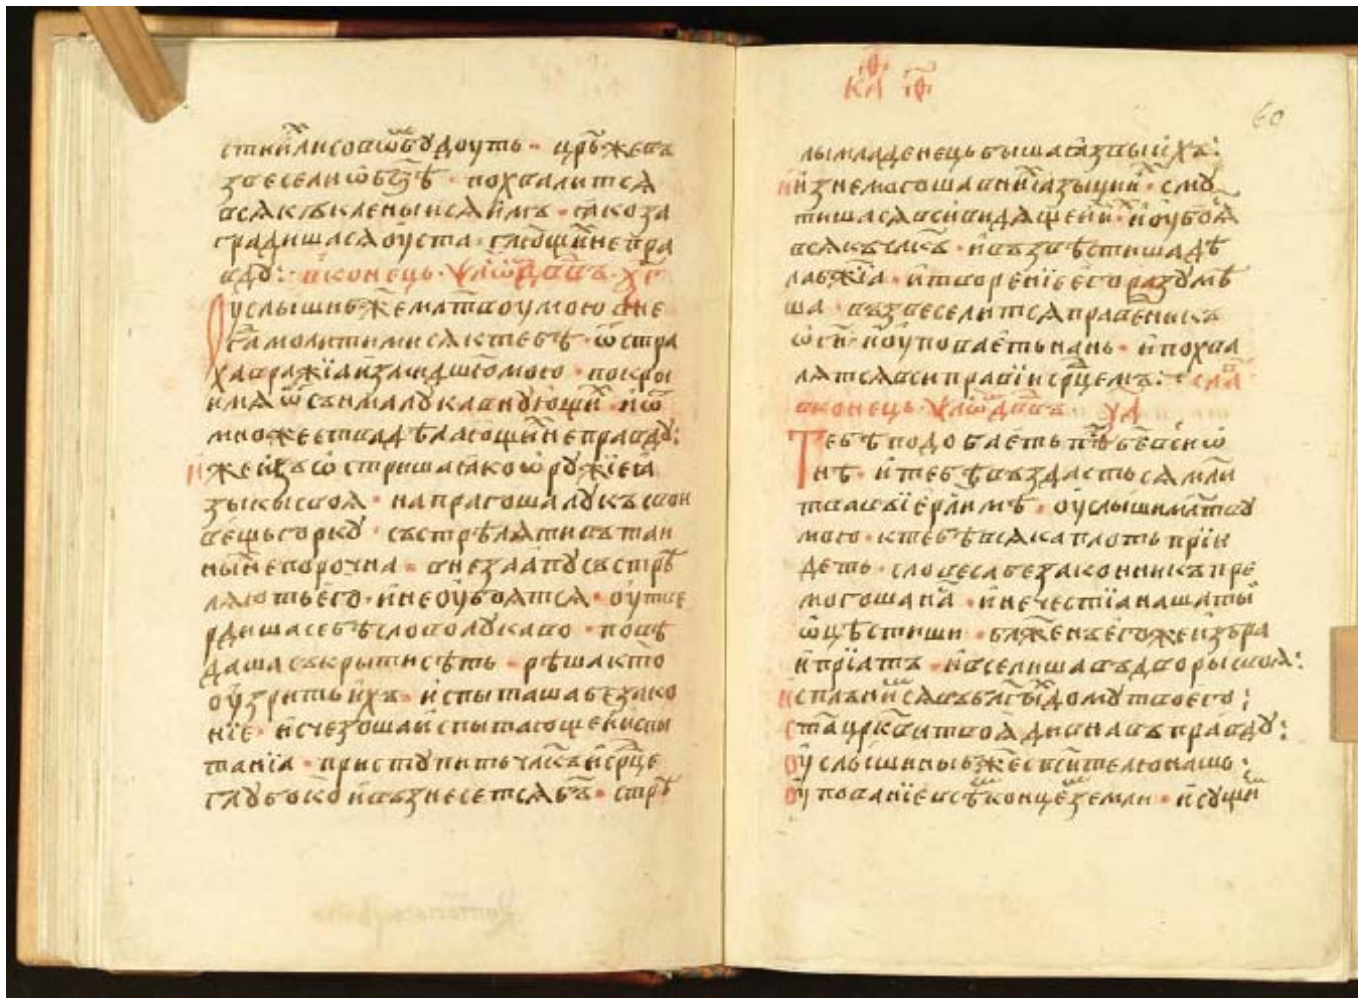 сти҆ли́совѡⷨбꙋдоуть · цр҃ьжевъ
звеселиⷮѡбз҃ѣ · похвалитсѧ
всѧкъкленыисѧи҆мъ · ꙗкоза
градишасѧоу҆ста · гл҃ющиⷯнепра
вдꙋ: вконець · ѱⷧ҇ѡ҃мъдв҃двъ · х҃г
Оуслышибж҃емлт҃воумою вне
гдамолитимисѧктебѣ · ѿстра
хавражїаи҆змидш҃ꙋмою · покры
имѧ ѿсънмалꙋкавнꙋющиⷯ · и҆ѿ
множествадѣлающиⷯнеправдꙋ:
и҆жеи҆зъѡстришаꙗкоѡ҆рꙋжїеꙗ҆
зыкысвоѧ · напрѧгошалꙋкъсвои
вещьгоркꙋ · състрѣлѧтивътаи
ныⷯнепорочна · внезаапꙋсъстрѣ
лѧютьего · и҆неоу҆боѧтсѧ · оу҆тве
рдишасебѣсловолꙋкаво · повѣ
дашасъкрытисѣть · рѣшакто
оу҆зритьи҆хъ · и҆спыташабезако
нїе · и҆счезошаи҆спытающеи҆спы
танїа · пристꙋпитьчл҃къи҆срⷣце
глꙋбоко и҆възнесетсѧбг҃ъ · стрѣ
ка҃ ф
60
лымладенецьбышаꙗ҆звыи҆хъ:
и҆и҆знемогошавниⷯꙗ҆зыциⷯи · смꙋ
тишасѧвсивидѧщеи҆ⷯ · и҆оу҆боѧ
всѧкъчл҃къ · и҆възвѣстишадѣ
лабж҃їа · и҆творенїеегоразꙋмѣ
ша · възвеселитсѧправⷣеникъ
ѡ҆гⷭ҇и · и҆оу҆поваетьнань · и҆похва
лѧтсѧвсиправїисрⷣцемъ: сла
вконець · ѱⷧ҇ѡ҃мъдв҃двъ х҃д
Тебѣподобаетьпⷭ҇ѣбж҃евсиѡ
нѣ · и҆тебѣвъздастьсѧмл҃и
твавъїерⷭ҇лимѣ · оу҆слышимлт҃вꙋ
мою · ктебѣвсѧкаплотьпрїи
деть · словесабезаконникъпре
могошана҃ · и҆нечестїанашаты
ѡ҆цѣстиши · блж҃енъегожеи҆зъбра
и҆прїатъ · и҆вселишавъдворысвоѧ:
и҆сплънимсѧвъблг҃ыⷯдомꙋтвоего;
ст҃ацр҃квитвоѧ дивнавъправдꙋ:
оу҆слышиныбж҃есп҃ителюнашь:
оу҆пованїевсѣⷯконцеⷨземли · и҆сꙋщиⷨ